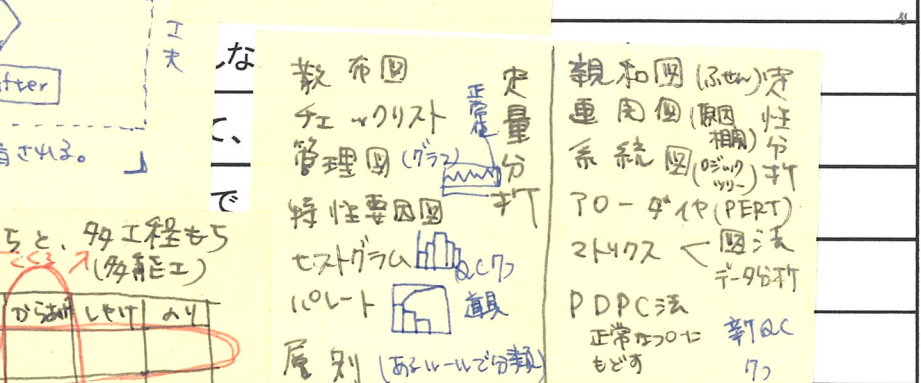 工夫
fter
な
て、
される。
で
ちと、多工程もち
(多能工)
からあげ しゃけ のり
散布図
チェックリスト
管理図(グラフ)
正常値
特性要因図
ヒストグラム
パレート
層別(あるルールで分類)
定量分析
QC7つ
道具
親和図(ふせん)
連関図(原因相関)
系統図(ロジックツリー)
アローダイヤ(PERT)
マトリクス
図法
データ分析
PDPC法
正常なフローに
もどす
定性分析
新QC
7つ